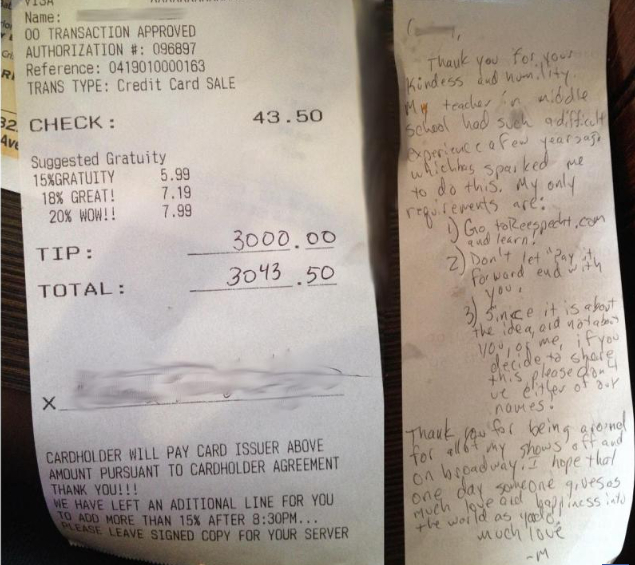 VISA
Name:
00 TRANSACTION APPROVED
AUTHORIZATION #: 096897
Reference: 0419010000163
TRANS TYPE: Credit Card SALE
CHECK: 43.50
Suggested Gratuity
15%GRATUITY 5.99
18% GREAT! 7.19
20% WOW!! 7.99
TIP: 3000.00
TOTAL: 3043.50
X
CARDHOLDER WILL PAY CARD ISSUER ABOVE
AMOUNT PURSUANT TO CARDHOLDER AGREEMENT
THANK YOU!!!
WE HAVE LEFT AN ADITIONAL LINE FOR YOU
TO ADD MORE THAN 15% AFTER 8:30PM...
PLEASE LEAVE SIGNED COPY FOR YOUR SERVER
Thank you for your
Kindess and humility.
My teacher in middle
school had such a difficult
experience a few years ago
which has sparked me
to do this. My only
requirements are:
1) Go to Reespecht.com
and learn!
2) Don't let "Pay it
forward end with
you.
3) Since it is about
the idea, and not about
you, or me, if you
decide to share
this, please don't
use either of our
names.
Thank you for being around
for all of my shows off and
on broadway. I hope that
one day someone gives as
much love and happiness into
the world as you do.
much love
-M